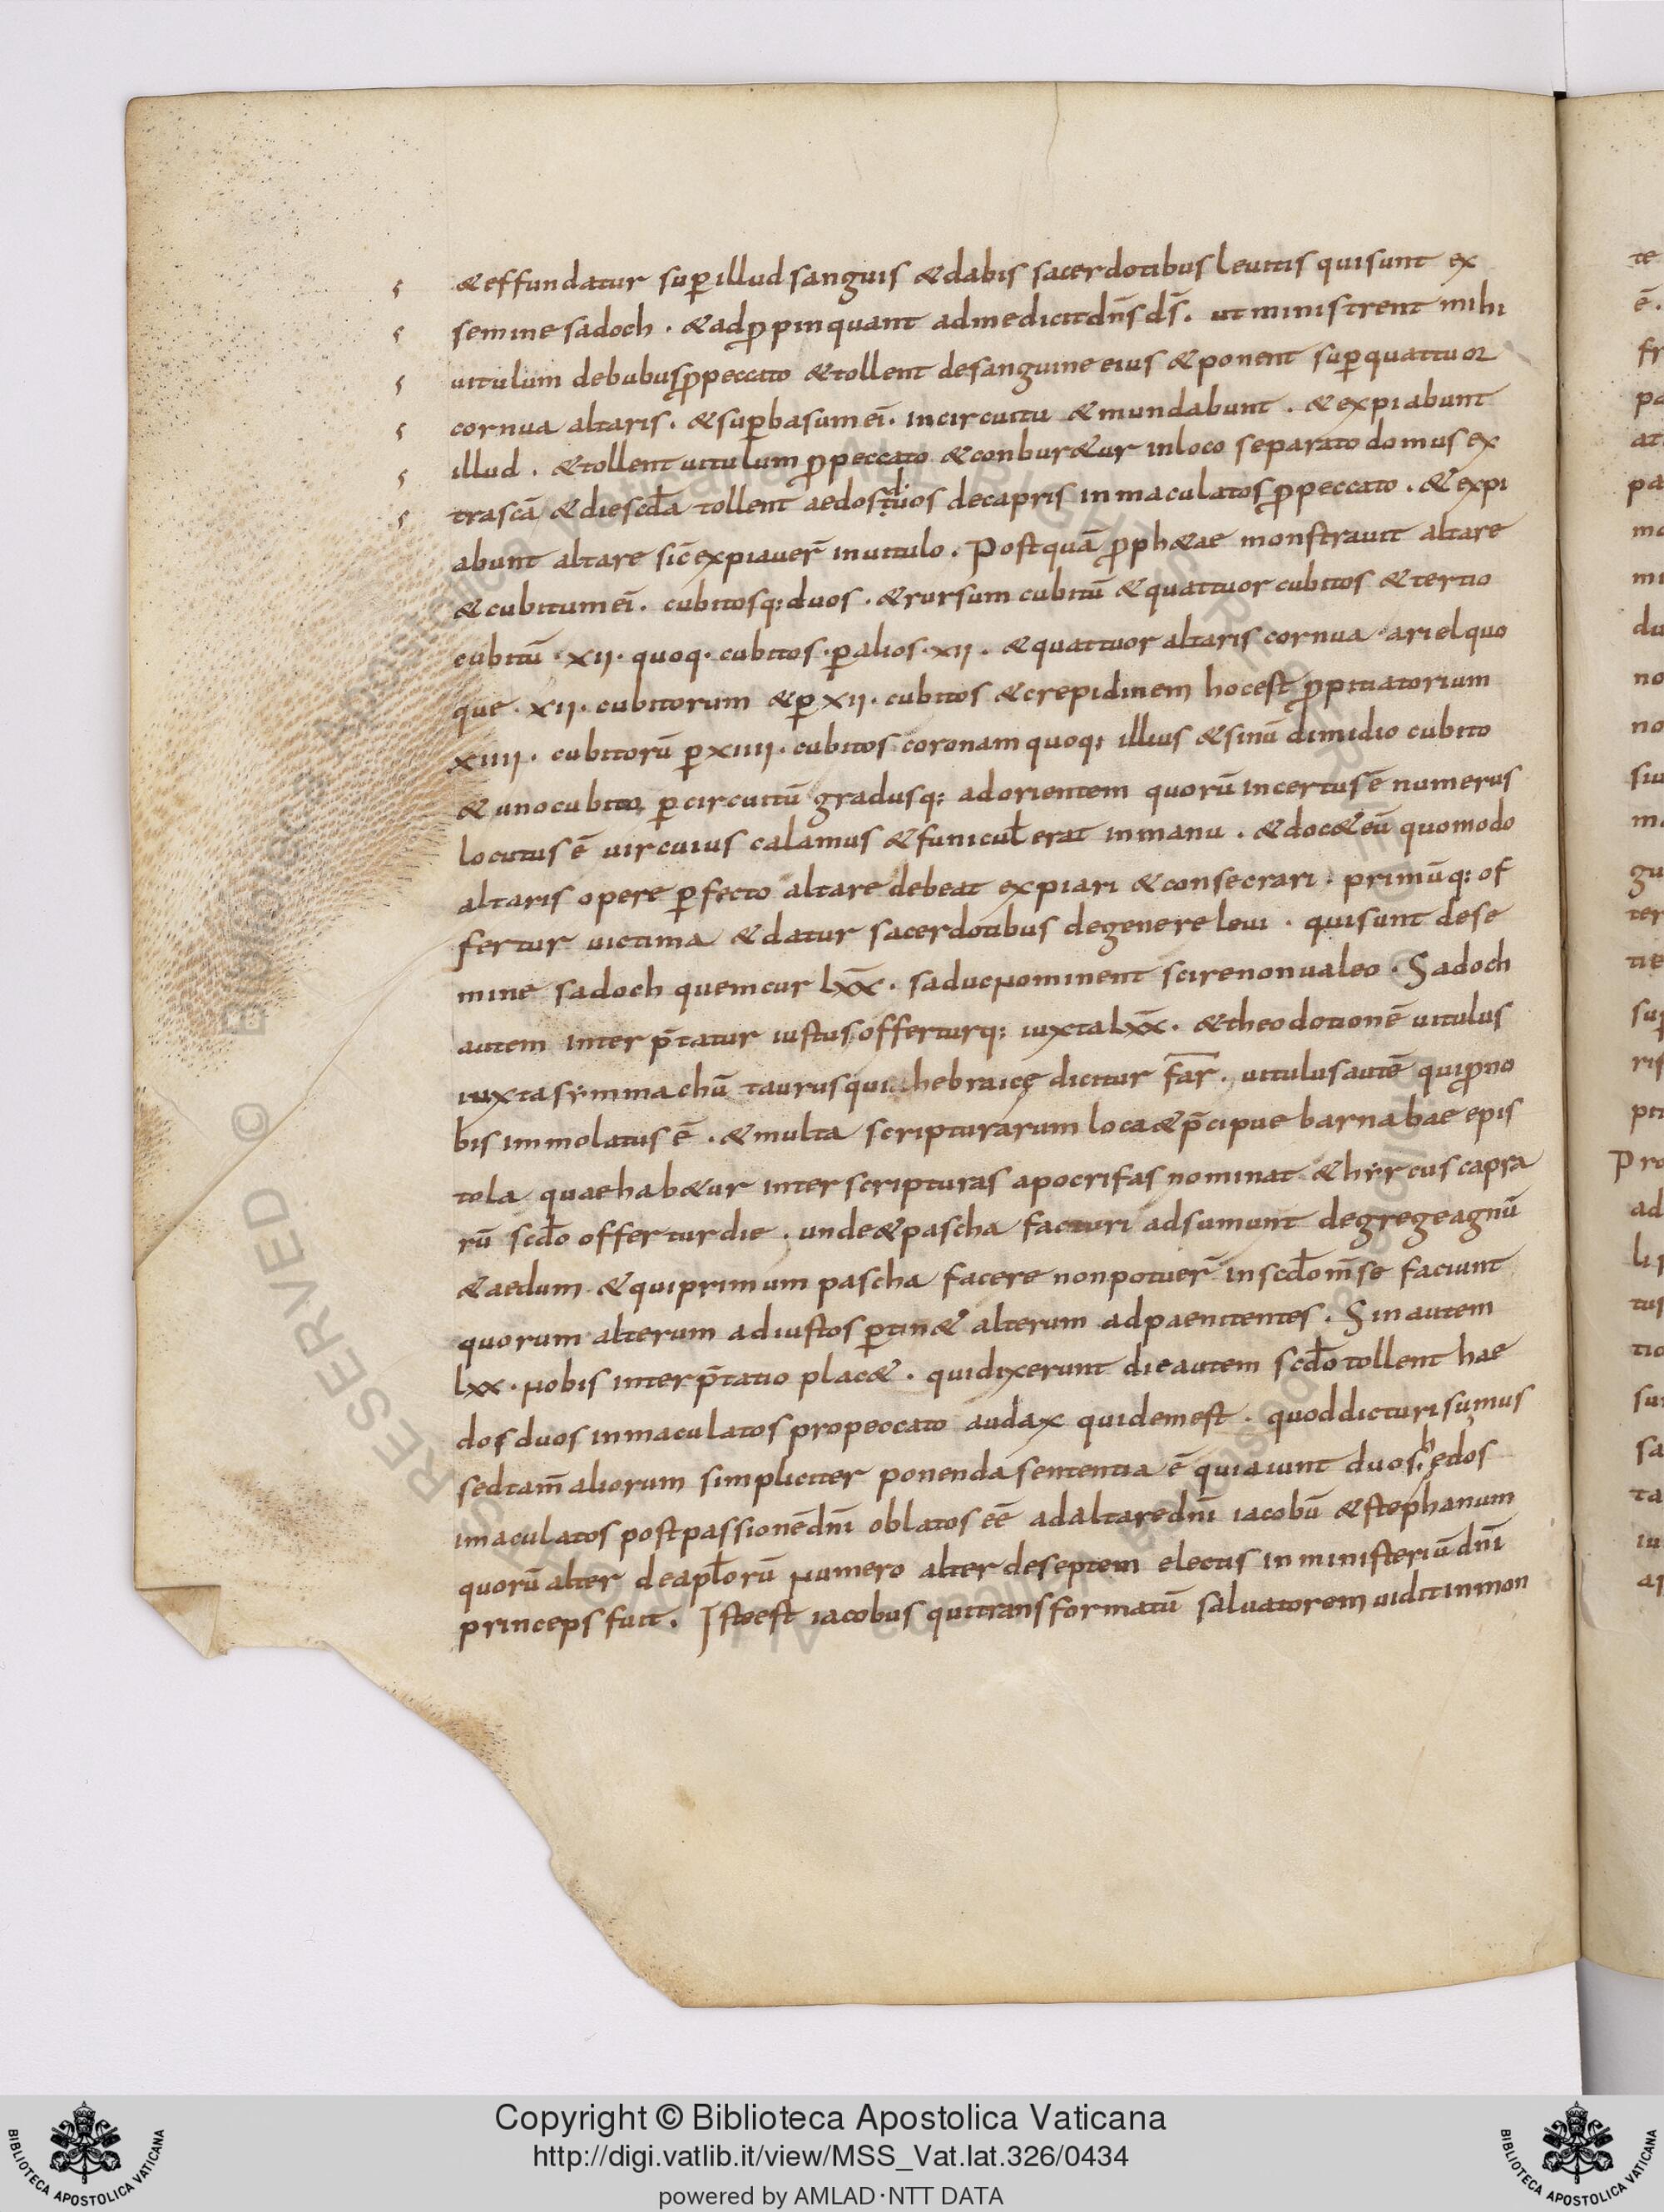 &effundatur sup̱ illud sanguis &dabis sacerdotibus leuitis qui sunt ex
semine sadoch . &adꝓpinquant ad me dicit dn̄s ds̄. ut ministrent mihi
uitulum de bubus ꝓpeccato &tollent de sanguine eius &ponent suꝑ quattuor
cornua altaris . &suꝑ basum ei̅. in circuitu &mundabunt . &expiabunt
illud . &tollent uitulum ꝓpeccato &conbur&ur in loco separato domus ex
tra scā &die scd̄a tollent aedos duos de capris inmaculatos ꝓpeccato . &expi
abunt altare sic̄ expiauer̄ in uitulo . Postquā ꝓph&ae monstrauit altare
&cubitum ei̅. cubitosq; duos . &rursum cubitū &quattuor cubitos &tertio
cubitū · xii · quoq· cubitos · ꝑ alios · xii . &quattuor altaris cornua · ariel quo
que · xii · cubitorum &ꝑ xii · cubitos &crepidinem hoc est ꝓpitiatorium
xiiii · cubitorū ꝑ xiiii · cubitos coronam quoq; illius &sinū dimidio cubito
&uno cubito ꝑ circuitū gradusq; ad orientem quorū incertus ē numerus
locutus ē uir cuius calamus &funicul̄ erat in manu . &doc& eū quomodo
altaris opere ꝑfecto altare debeat expiari &consecrari . primūq; of
fertur uictima &datur sacerdotibus de genere leui . qui sunt de se
mine sadoch quem cur lx̄x̄ . saduc nominent scire non ualeo . Sadoch
autem interp̄tatur iustus offerturq; iuxta lx̄x̄ . &theodotionē uitulus
iuxta sẏmmachū taurus qui hebraicę dicitur f̄ar̄ . uitulus autē qui ꝓ no
bis immolatus ē . &multa scripturarum loca &p̄cipue barnabae epis
tola quae hab&ur inter scripturas apocrifas nominat &hẏrcus capra
rū scd̄o offertur die . unde &pascha facturi adsumunt de grege agnū
&aedum &qui primum pascha facere non potuer̄ in scd̄o m̄se faciunt
quorum alterum ad iustos ꝑtin& alterum ad paenitentes . Sin autem
lxx · nobis interp̄tatio plac& . qui dixerunt die autem scd̄o tollent hae
dos duos inmaculatos pro peccato audax quidem est . quod dicturi sumus
sed tam̄ aliorum simpliciter ponenda sententia ē quia iunt duos hędos
imaculatos post passionē dn̄i oblatos eē ad altare dn̄i iacobū &stephanum
quorū alter de apl̄orū numero alter de septem electis in ministeriū dn̄i
princeps fuit . Iste est iacobus qui transformatū saluatorem uidit in mon
te
ē .
fr
pa
at
pa
mo
mi
du
no
no
siu
ma
gu
ter
tie
sup
ris
pti
Pro
ad
li
tus
tio
sun
sa
ta
iu
ap
Copyright © Biblioteca Apostolica Vaticana
http://digi.vatlib.it/view/MSS_Vat.lat.326/0434
powered by AMLAD·NTT DATA
BIBLIOTECA APOSTOLICA VATICANA
BIBLIOTECA APOSTOLICA VATICANA